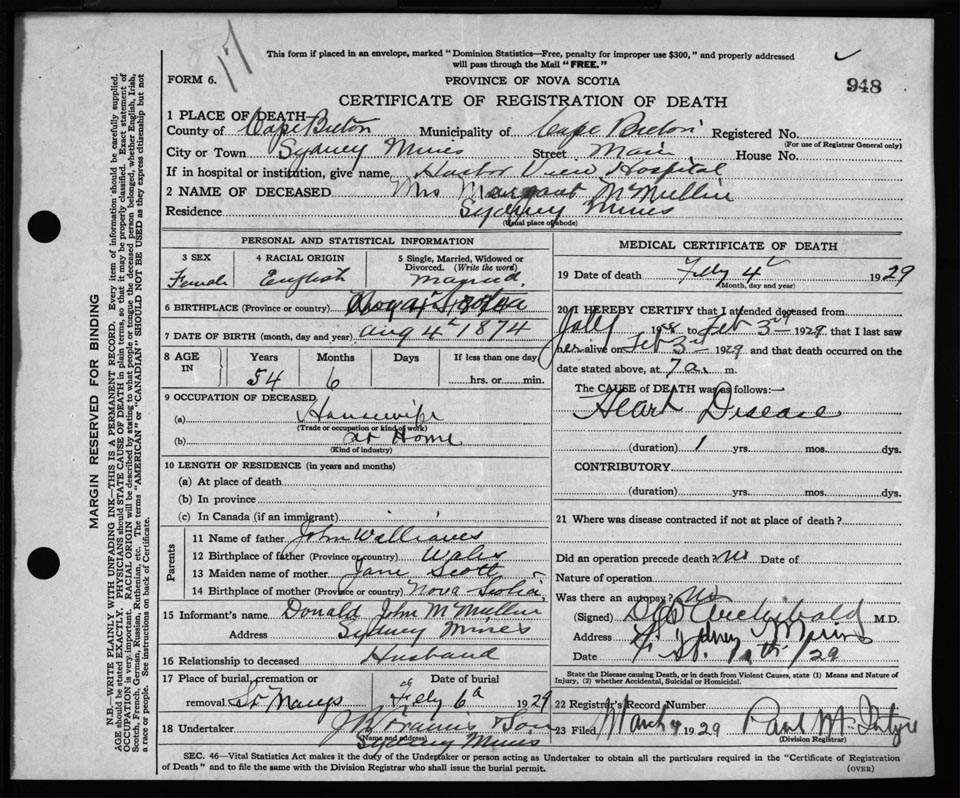 117
This form if placed in an envelope, marked "Dominion Statistics—Free, penalty for improper use $300," and properly addressed
will pass through the Mail "FREE."
FORM 6.
PROVINCE OF NOVA SCOTIA
948
CERTIFICATE OF REGISTRATION OF DEATH
1 PLACE OF DEATH
County of Cape Breton Municipality of Cape Breton Registered No.
(For use of Registrar General only)
City or Town Sydney Mines Street Main House No.
If in hospital or institution, give name Harbor View Hospital
2 NAME OF DECEASED Mrs Margaret McMullin
Residence Sydney Mines
(Usual place of abode)
PERSONAL AND STATISTICAL INFORMATION
3 SEX 4 RACIAL ORIGIN 5 Single, Married, Widowed or
Divorced. (Write the word)
Female English Married
6 BIRTHPLACE (Province or country) Nova Scotia
7 DATE OF BIRTH (month, day and year) Aug 4th 1874
8 AGE IN Years Months Days If less than one day
54 6 hrs. or min.
9 OCCUPATION OF DECEASED
(a) Housewife
(Trade or occupation or kind of work)
(b) at Home
(Kind of industry)
10 LENGTH OF RESIDENCE (in years and months)
(a) At place of death
(b) In province
(c) In Canada (if an immigrant)
Parents
11 Name of father John Williams
12 Birthplace of father (Province or country) Wales
13 Maiden name of mother Jane Scott
14 Birthplace of mother (Province or country) Nova Scotia
15 Informant's name Donald John McMullin
Address Sydney Mines
16 Relationship to deceased Husband
17 Place of burial, cremation or Date of burial
removal St Marys Feby 6th 1929
18 Undertaker & Son
(Name and address)
Sydney Mines
MEDICAL CERTIFICATE OF DEATH
19 Date of death Feby 4th 1929
(Month, day and year)
20 I HEREBY CERTIFY that I attended deceased from
July 1928 to Feb 3rd 1929 that I last saw
her alive on Feb 3rd 1929 and that death occurred on the
date stated above, at 7 a. m.
The CAUSE of DEATH was as follows:—
Heart Disease
(duration) 1 yrs. mos. dys.
CONTRIBUTORY
(duration) yrs. mos. dys.
21 Where was disease contracted if not at place of death?
Did an operation precede death? No Date of
Nature of operation
Was there an autopsy? No
(Signed) Archibald M.D.
Address Sydney Mines
Date /29
State the Disease causing Death, or in death from Violent Causes, state (1) Means and Nature of
Injury, (2) whether Accidental, Suicidal or Homicidal.
22 Registrar's Record Number
23 Filed March 1929 Paul McIntyre
(Division Registrar)
SEC. 46—Vital Statistics Act makes it the duty of the Undertaker or person acting as Undertaker to obtain all the particulars required in the "Certificate of Registration
of Death" and to file the same with the Division Registrar who shall issue the burial permit.
(OVER)
MARGIN RESERVED FOR BINDING
N.B.—WRITE PLAINLY WITH UNFADING INK—THIS IS A PERMANENT RECORD. Every item of information should be carefully supplied.
AGE should be stated EXACTLY. PHYSICIANS should STATE CAUSE OF DEATH in plain terms, so that it may be properly classified. Exact statement of
OCCUPATION is very important. RACIAL ORIGIN will be described by stating to what people or tongue the deceased person belonged, whether English, Irish,
Scotch, French, German, Russian, Ruthenian, etc. The terms "AMERICAN" or "CANADIAN" SHOULD NOT BE USED as they express citizenship but not
a race or people. See instructions on back of Certificate.